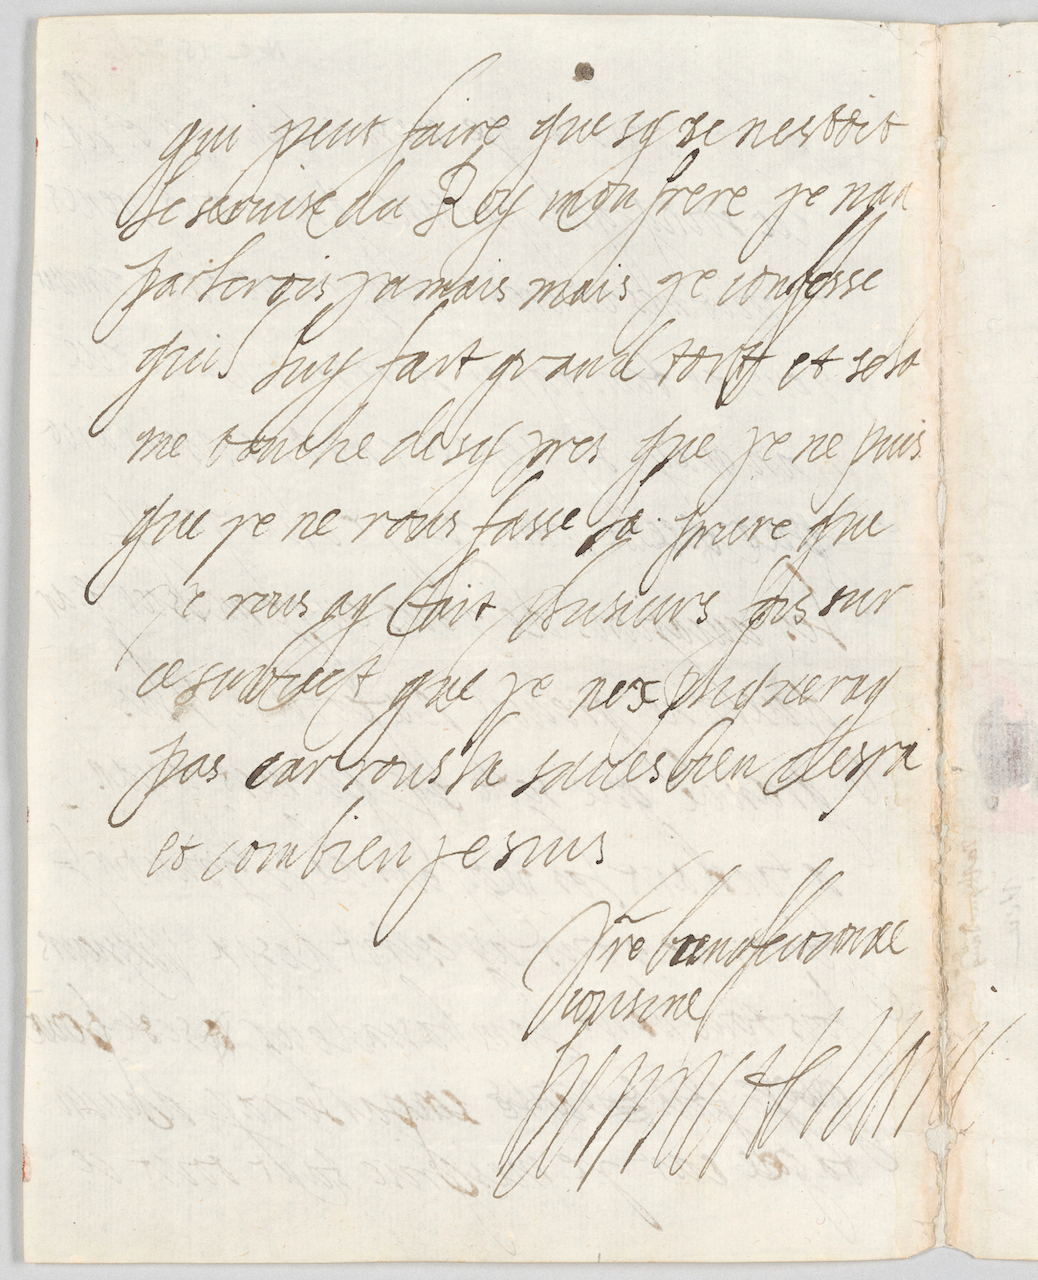 qui peut faire que sy se nestoit
le service du Roy mon frere je nan
parlerois jamais mais je confesse
quil luy faict grand tort et sela
me touche de sy pres que je ne puis
que je ne vous fasse la priere que
je vous ay fait plusieurs fois sur
ce subject que je nexpliqueray
pas car vous le savés bien desja
et combien je suis
Vre bien affectionnee
cousine